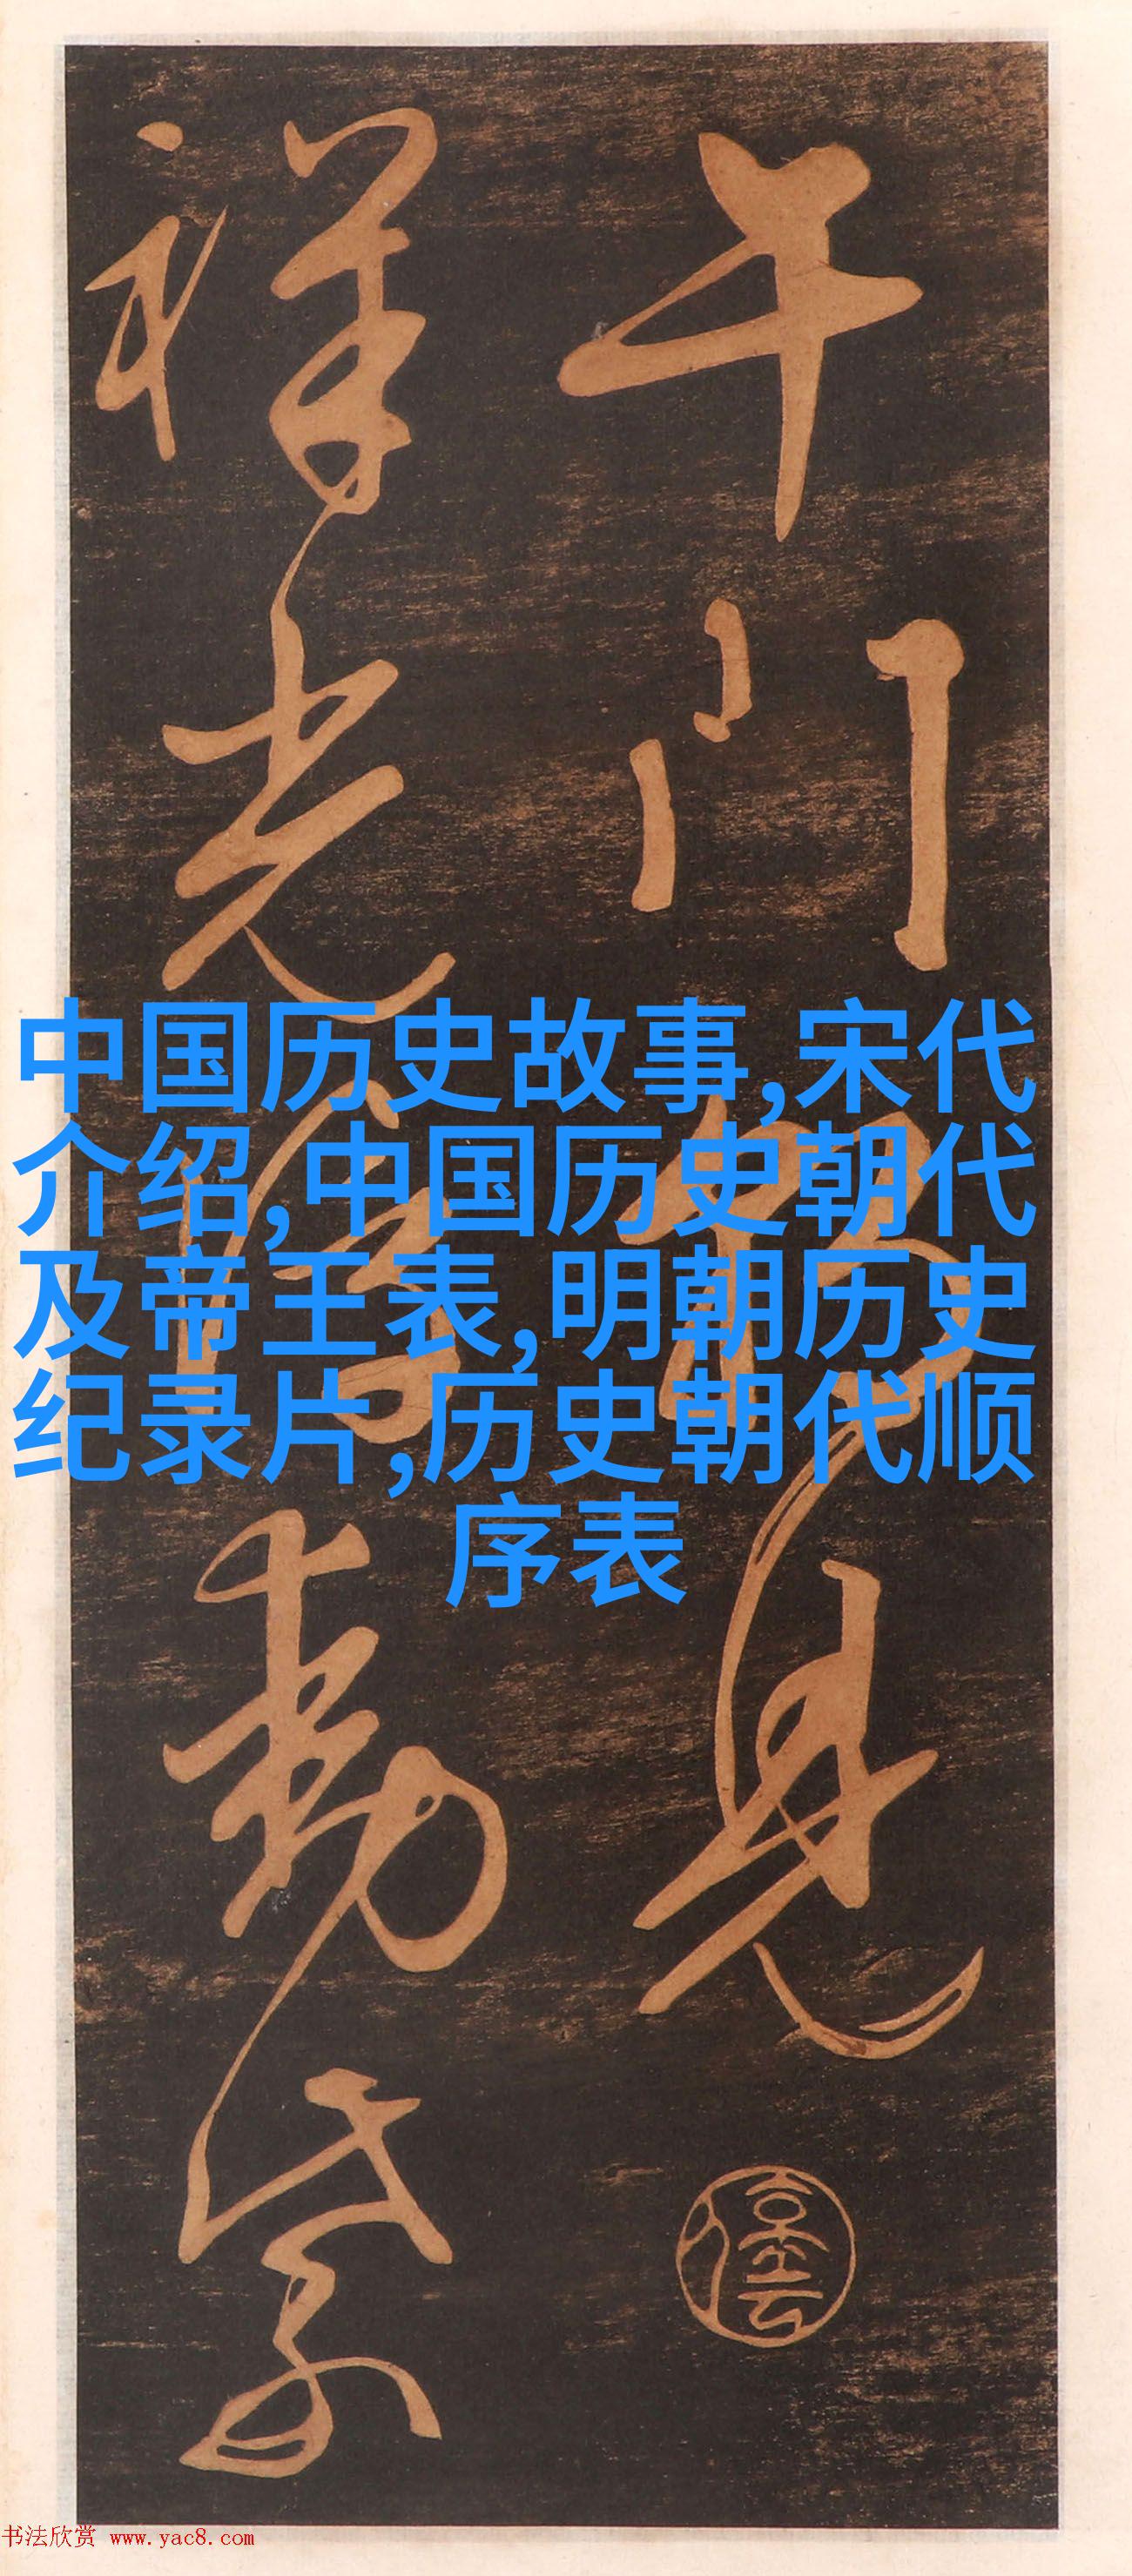 午门见
祥光動紫
中国历史故事,宋代
介绍,中国历史朝代
及帝王表,明朝历史
纪录片,历史朝代顺
序表
书法欣赏 www.yac8.com